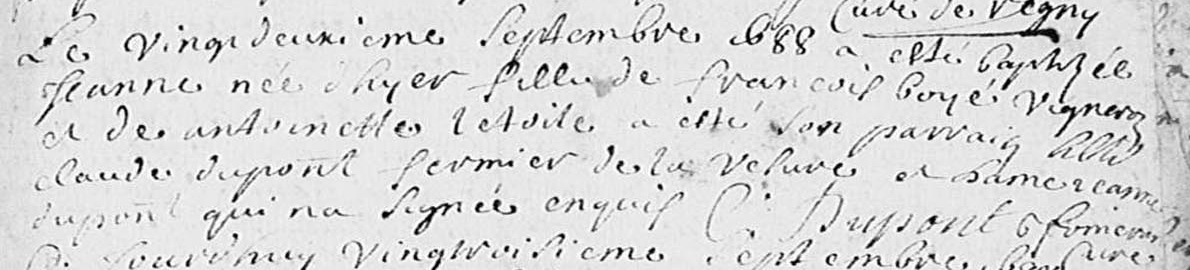 Curé de Regny
Le vingt deuxieme Septembre 1688 a esté baptizée
Jeanne née d'hyer fille de francois boyé vigneron
et de antoinette letoile a esté son parrain
claude dupont fermier de la Velure et dame jeanne
dupont qui na signée enquis C. Dupont
vingt troisieme Septembre